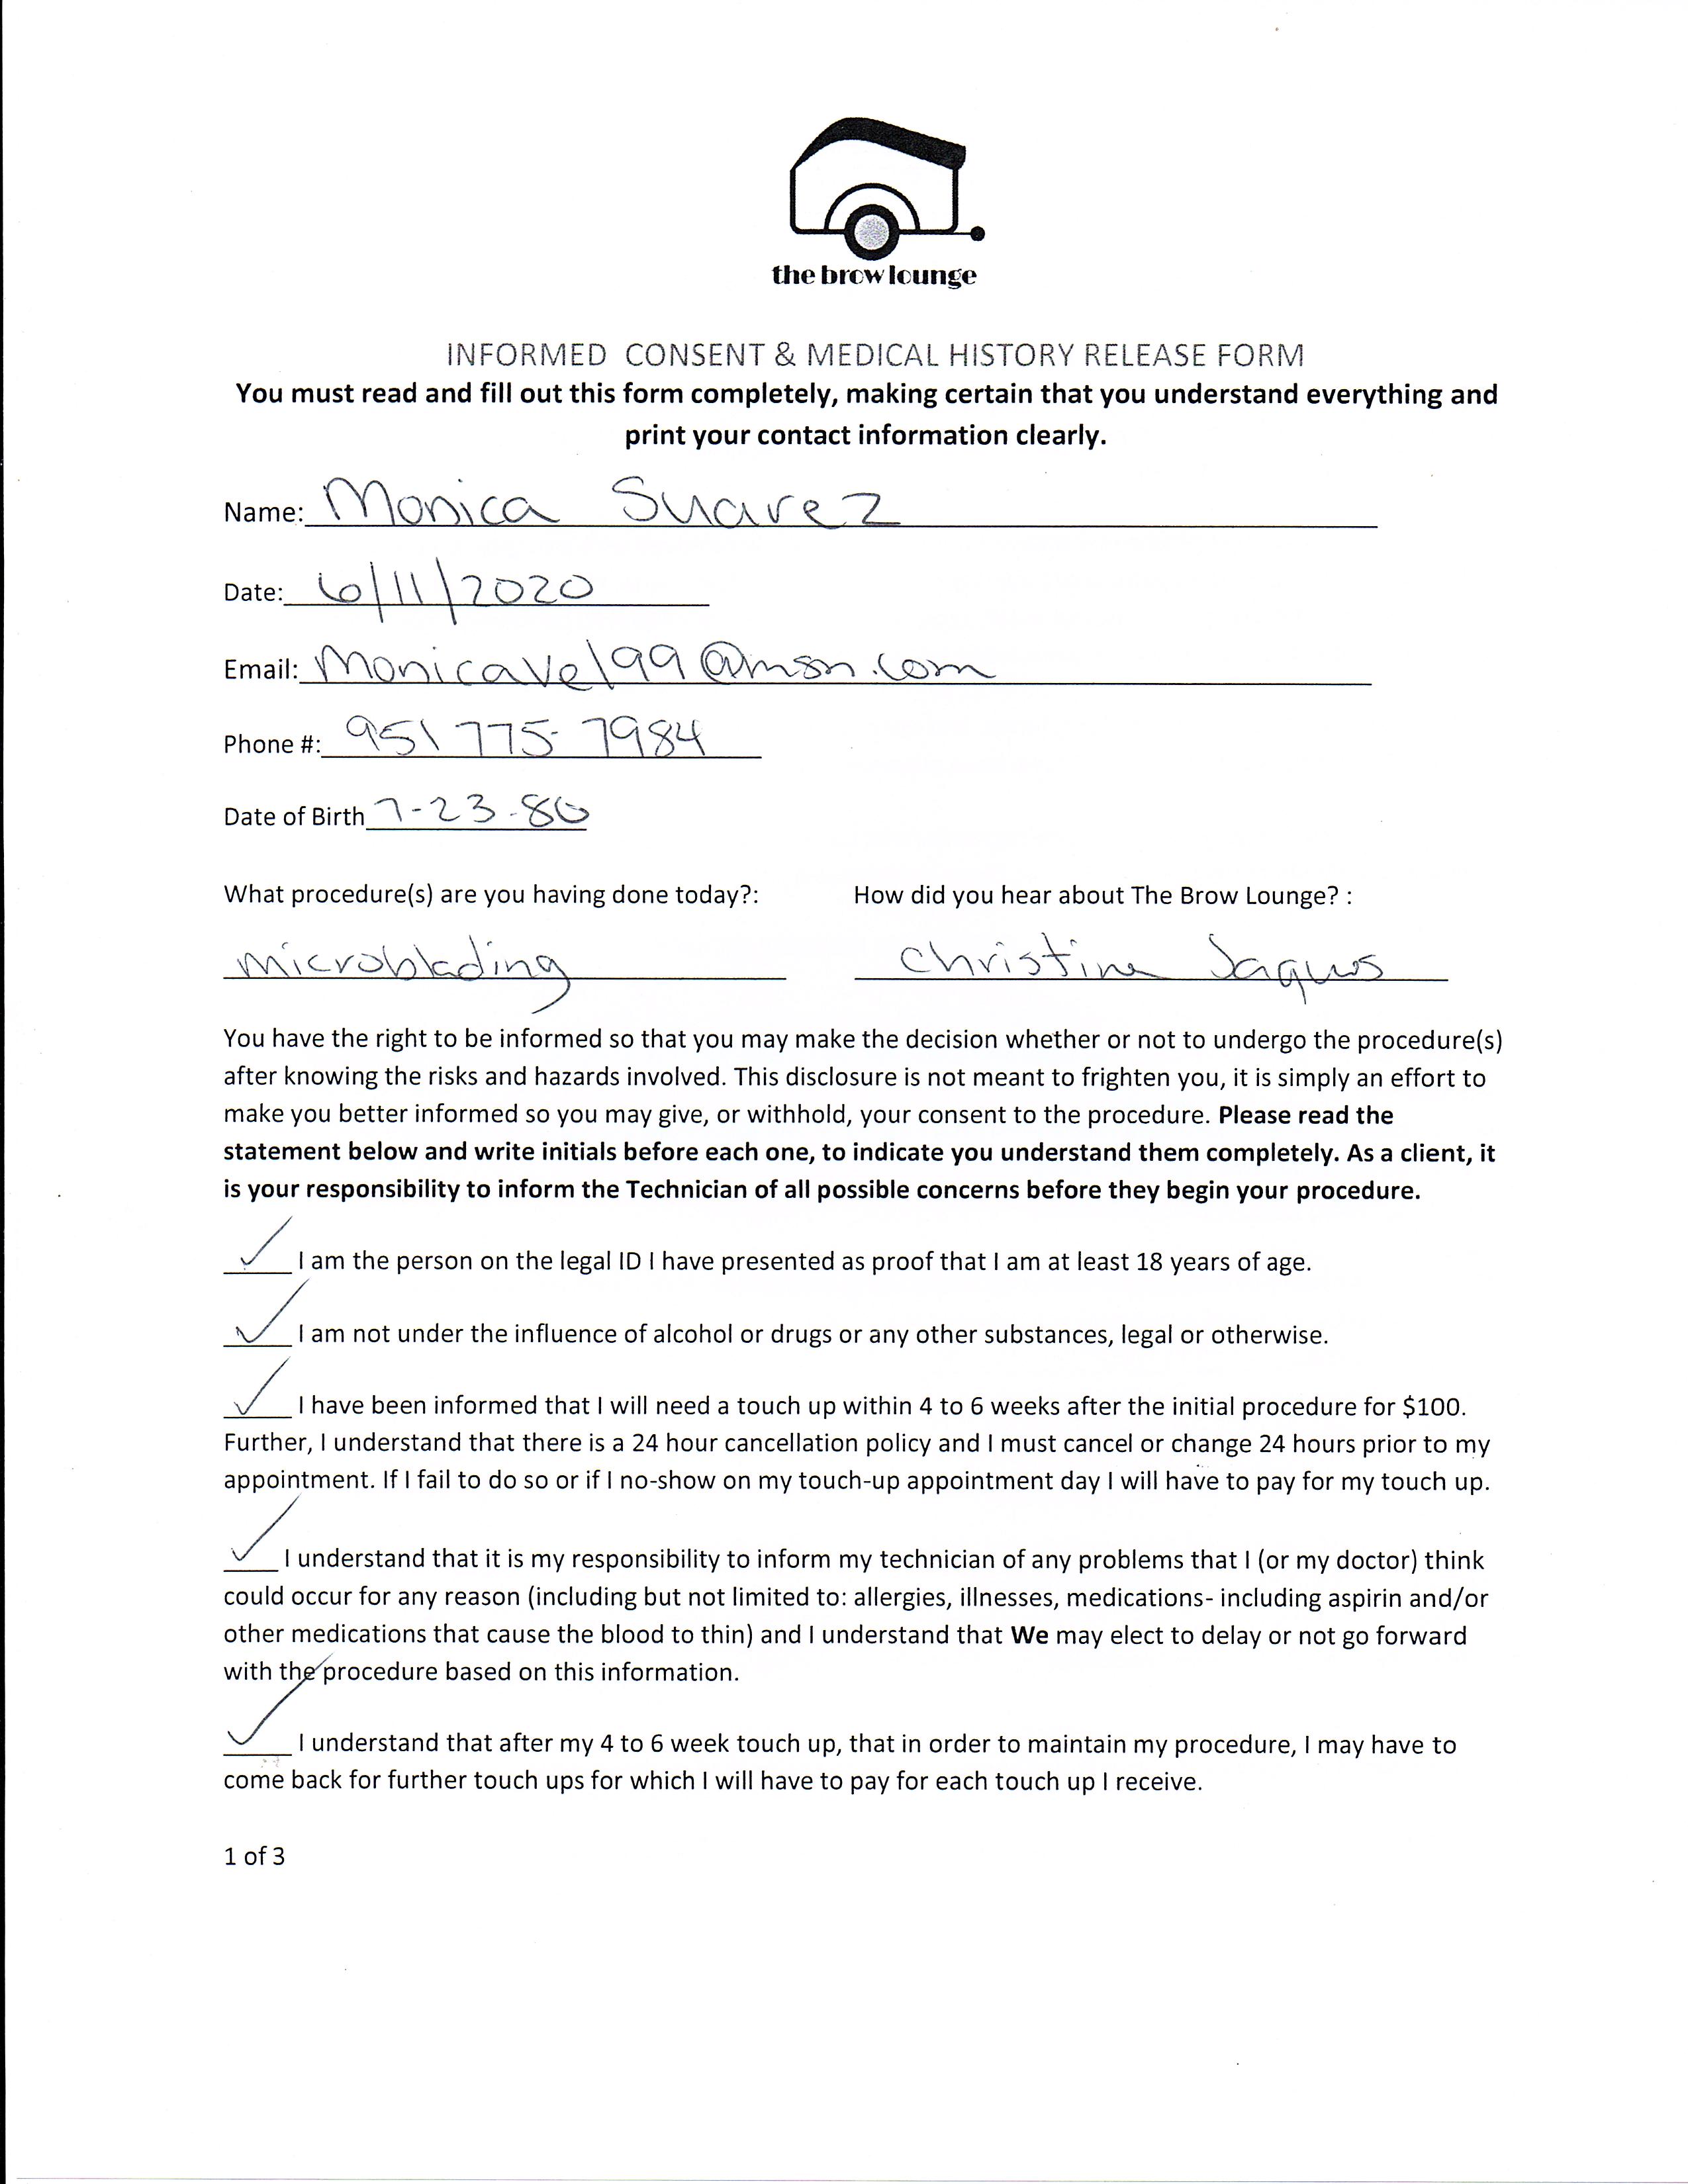 the brow lounge
INFORMED CONSENT & MEDICAL HISTORY RELEASE FORM
You must read and fill out this form completely, making certain that you understand everything and
print your contact information clearly.
Name: Monica Suarez
Date: 6/11/2020
Email: Monicavel99@msn.com
Phone #: 951 775-7984
Date of Birth 7-23-80
What procedure(s) are you having done today?: How did you hear about The Brow Lounge? :
microblading Christine Jaques
You have the right to be informed so that you may make the decision whether or not to undergo the procedure(s)
after knowing the risks and hazards involved. This disclosure is not meant to frighten you, it is simply an effort to
make you better informed so you may give, or withhold, your consent to the procedure. Please read the
statement below and write initials before each one, to indicate you understand them completely. As a client, it
is your responsibility to inform the Technician of all possible concerns before they begin your procedure.
✓ I am the person on the legal ID I have presented as proof that I am at least 18 years of age.
✓ I am not under the influence of alcohol or drugs or any other substances, legal or otherwise.
✓ I have been informed that I will need a touch up within 4 to 6 weeks after the initial procedure for $100.
Further, I understand that there is a 24 hour cancellation policy and I must cancel or change 24 hours prior to my
appointment. If I fail to do so or if I no-show on my touch-up appointment day I will have to pay for my touch up.
✓ I understand that it is my responsibility to inform my technician of any problems that I (or my doctor) think
could occur for any reason (including but not limited to: allergies, illnesses, medications- including aspirin and/or
other medications that cause the blood to thin) and I understand that We may elect to delay or not go forward
with the procedure based on this information.
✓ I understand that after my 4 to 6 week touch up, that in order to maintain my procedure, I may have to
come back for further touch ups for which I will have to pay for each touch up I receive.
1 of 3